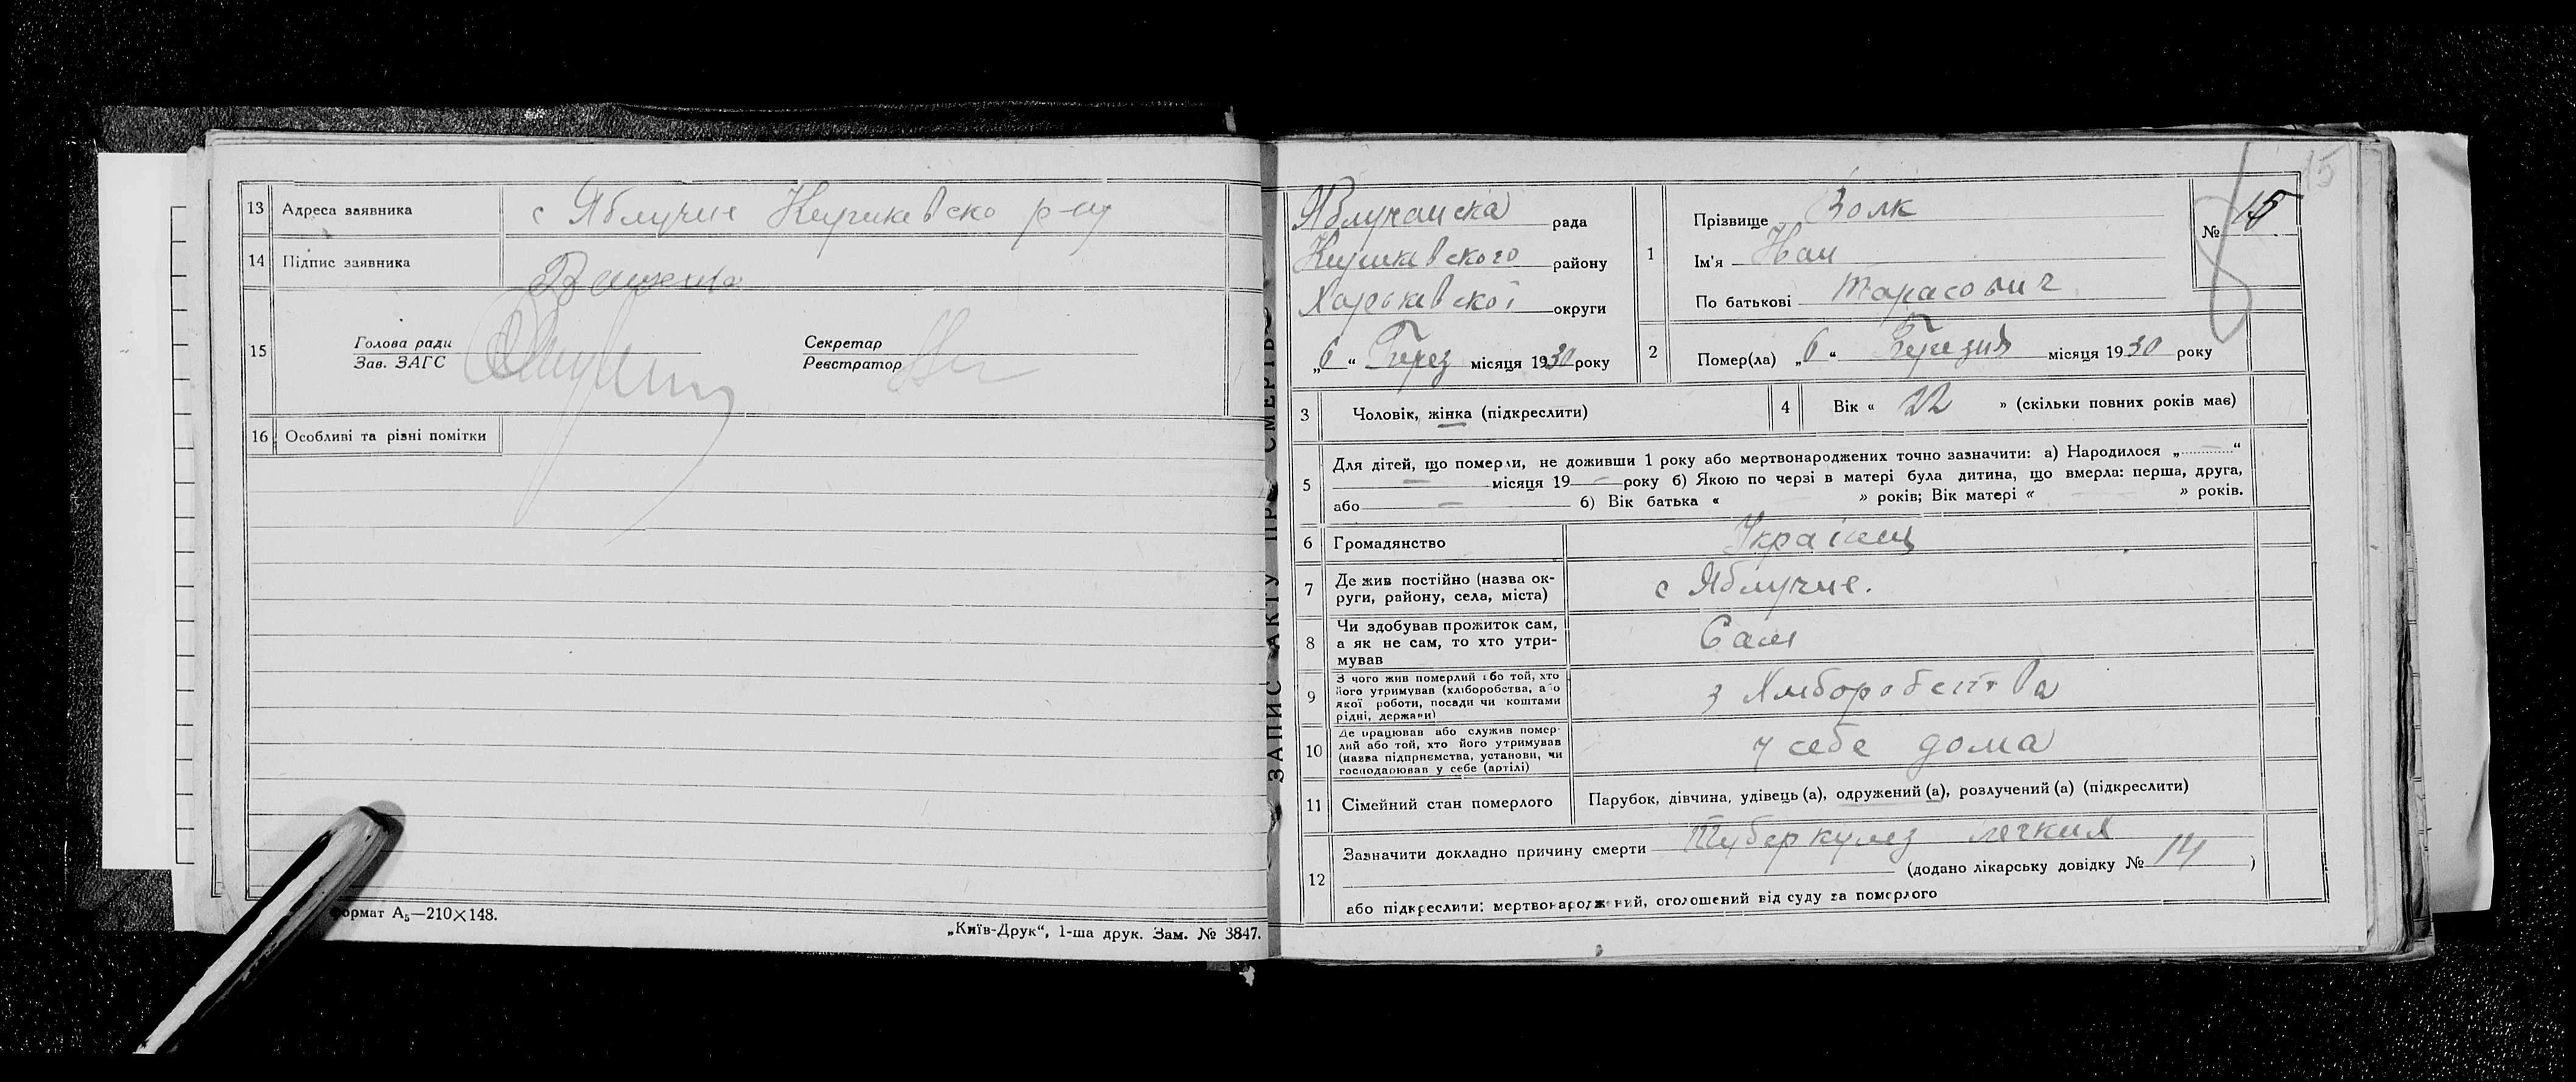 13 Адреса заявника с Яблучне р-ну
14 Підпис заявника
15 Голова ради
Зав. ЗАГС
Секретар
Реєстратор
16 Особливі та різні помітки
формат А5—210×148.
„Київ-Друк“, 1-ша друк. Зам. № 3847.
ЗАПИС АКТУ ПРО СМЕРТЬ
15
№ 15
Яблучанська рада
району
Харьківської округи
„6“ Берез місяця 1930 року
1 Прізвище
Ім'я Иван
По батькові Тарасович
2 Помер(ла) „6“ Березня місяця 1930 року
3 Чоловік, жінка (підкреслити)
4 Вік « 22 » (скільки повних років має)
5 Для дітей, що померли, не доживши 1 року або мертвонароджених точно зазначити: а) Народилося „—“
— місяця 19— року б) Якою по черзі в матері була дитина, що вмерла: перша, друга,
або — б) Вік батька « » років; Вік матері « » років.
6 Громадянство Українец
7 Де жив постійно (назва ок-
руги, району, села, міста) с Яблучне.
8 Чи здобував прожиток сам,
а як не сам, то хто утри-
мував Сам
9 З чого жив померлий або той, хто
його утримував (хліборобства, або
якої роботи, посади чи коштами
рідні, держави) з Хліборобства
10 Де працював або служив помер-
лий або той, хто його утримував
(назва підприємства, установи, чи
господарював у себе (артілі) у себе дома
11 Сімейний стан померлого Парубок, дівчина, удівець (а), одружений (а), розлучений (а) (підкреслити)
12 Зазначити докладно причину смерти Туберкулез легких
(додано лікарську довідку № 14 )
або підкреслити: мертвонароджений, оголошений від суду за померлого